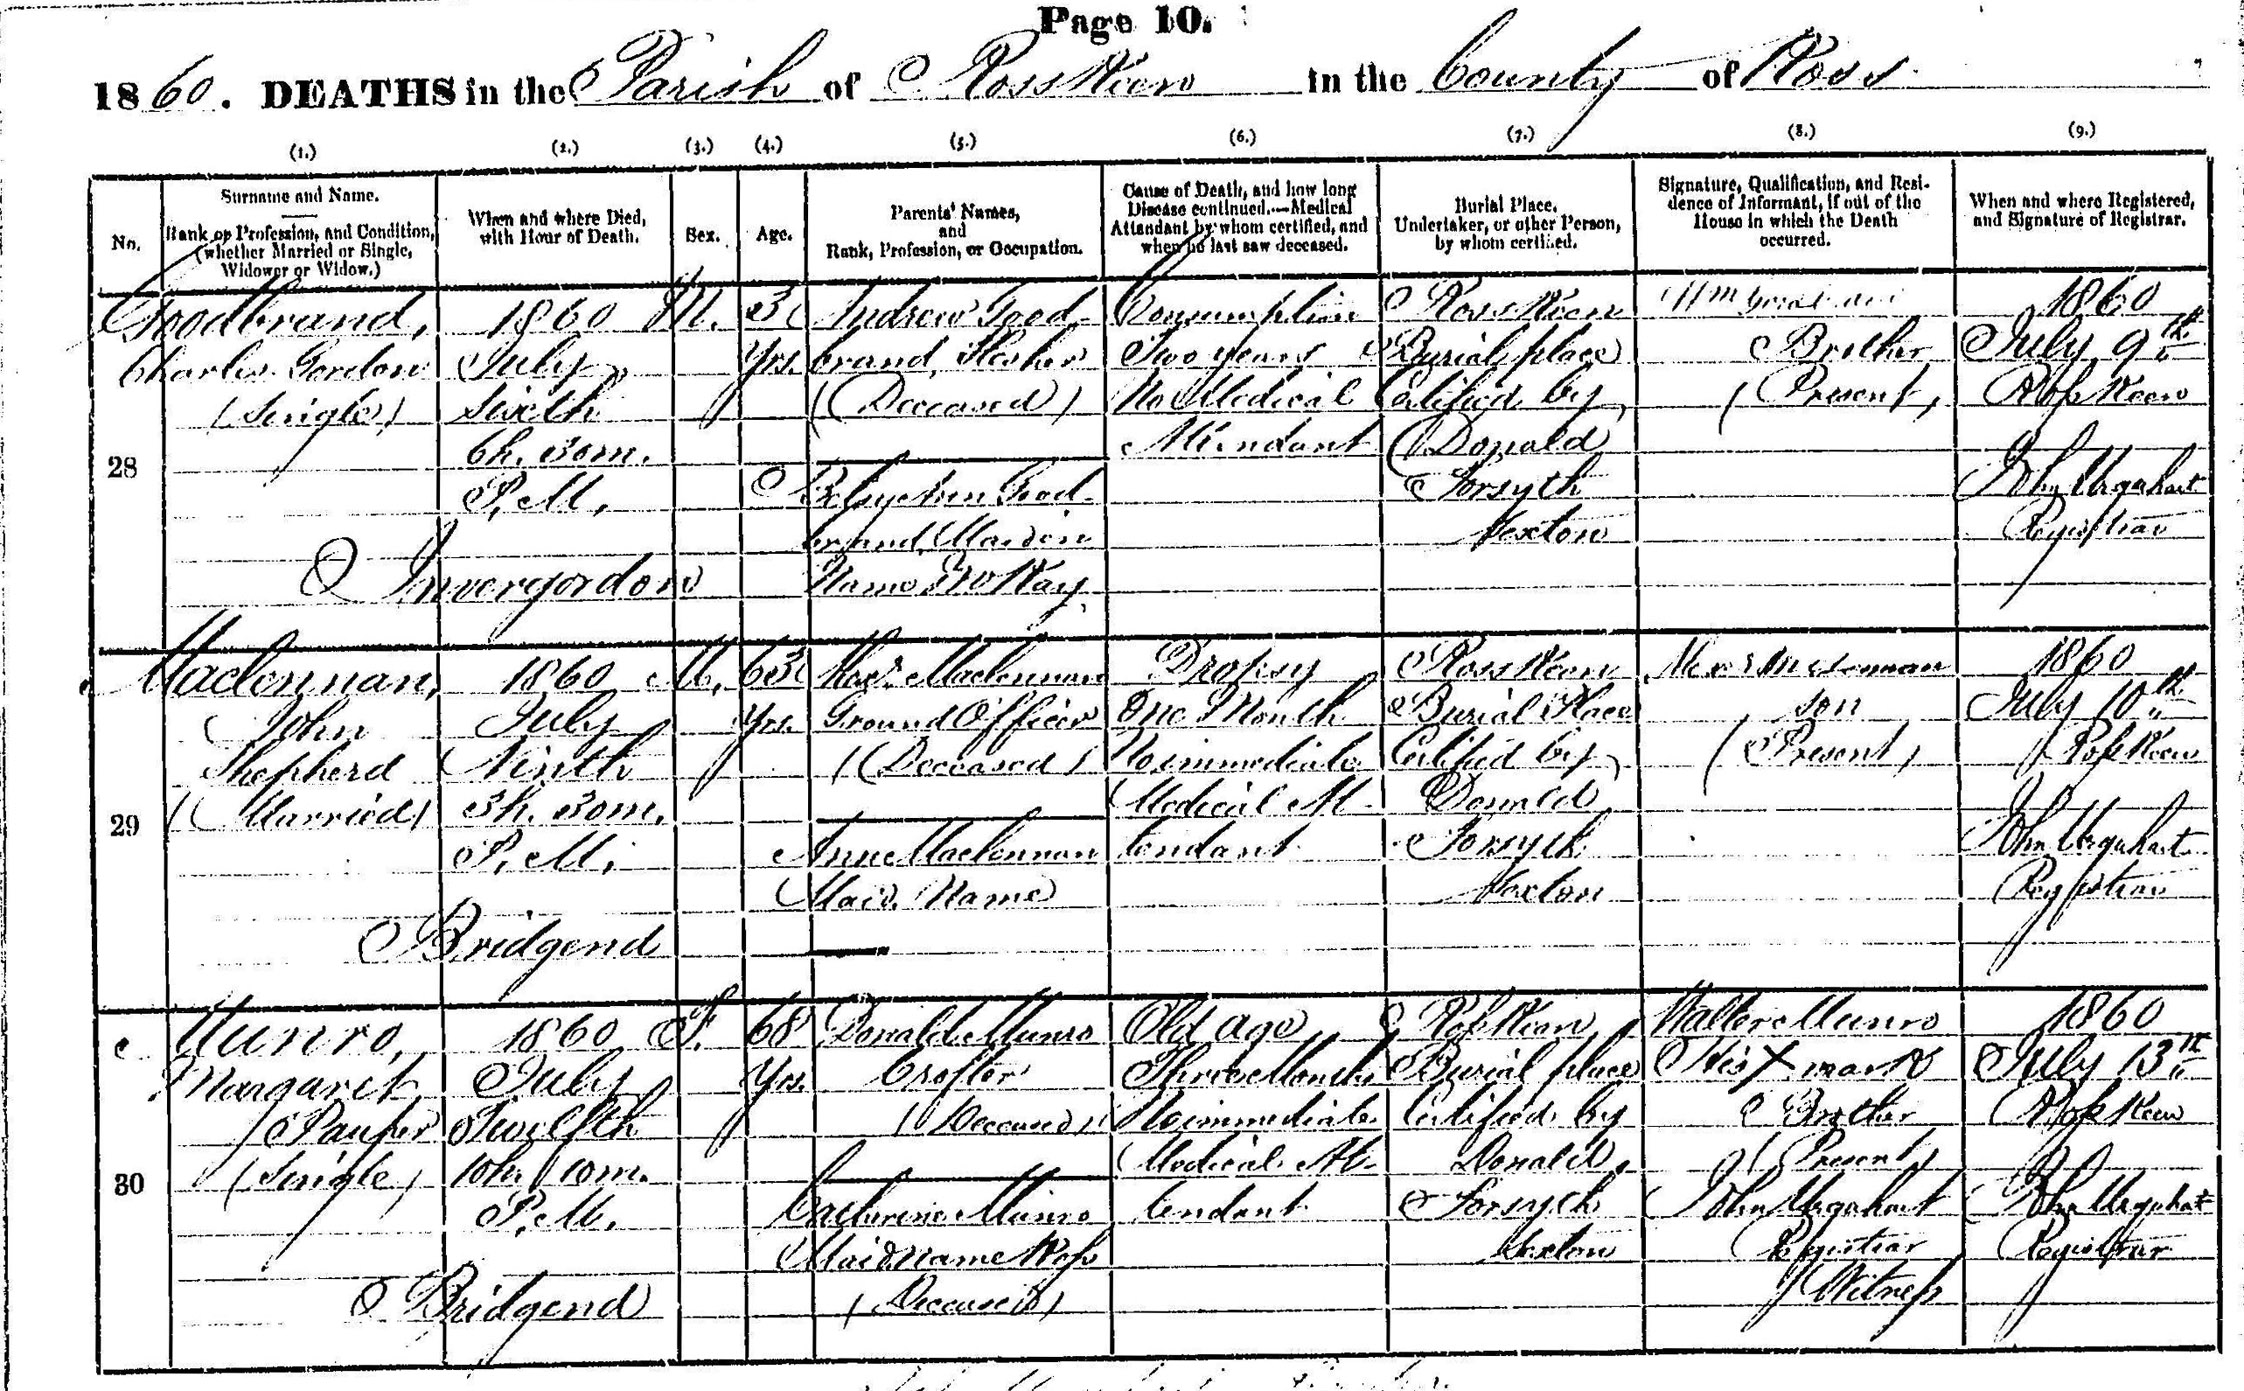 Page 10.
1860. DEATHS in the Parish of Rosskeen in the County of Ross
(1.) (2.) (3.) (4.) (5.) (6.) (7.) (8.) (9.)
No.
Surname and Name.
Rank or Profession, and Condition,
(whether Married or Single,
Widower or Widow.)
When and where Died,
with Hour of Death.
Sex.
Age.
Parents' Names,
and
Rank, Profession, or Occupation.
Cause of Death, and how long
Disease continued.—Medical
Attendant by whom certified, and
when he last saw deceased.
Burial Place.
Undertaker, or other Person,
by whom certified.
Signature, Qualification, and Resi-
dence of Informant, if out of the
House in which the Death
occurred.
When and where Registered,
and Signature of Registrar.
28
Goodbrand,
Charles Gordon
(Single)
1860
July
Sixth
6h. 30m.
P.M.
Invergordon
M.
Yrs.
Andrew Good-
brand, Flesher
(Deceased)
Betsy Ann Good-
brand, Maiden
Name McKay
Consumption
Two years
No Medical
Attendant
Rosskeen
Burial place
Certified by
Donald
Forsyth
Sexton
Wm
Brother
(Present)
1860
July 9th
Rosskeen
John Urquhart
Registrar
29
Maclennan,
John
Shepherd
(Married)
1860
July
Ninth
3h. 30m.
P.M.
Bridgend
M.
63
Yrs.
Maclennan
Ground Officer
(Deceased)
Anne Maclennan
Maid. Name
Dropsy
One Month
No immediate
Medical At-
tendant
Rosskeen
Burial Place
Certified by
Donald
Forsyth
Sexton
son
(Present)
1860
July 10th
Rosskeen
John Urquhart
Registrar
30
Munro,
Margaret
Pauper
(Single)
1860
July
Twelfth
10h. 10m.
P.M.
Bridgend
F.
68
Yrs.
Donald Munro
Crofter
(Deceased)
Catherine Munro
Maid. name Ross
(Deceased)
Old age
Three Months
No immediate
Medical At-
tendant
Rosskeen
Burial place
Certified by
Donald
Forsyth
Sexton
Walter Munro
His X mark
Brother
(Present)
John Urquhart
Registrar
Witness
1860
July 13th
Rosskeen
John Urquhart
Registrar